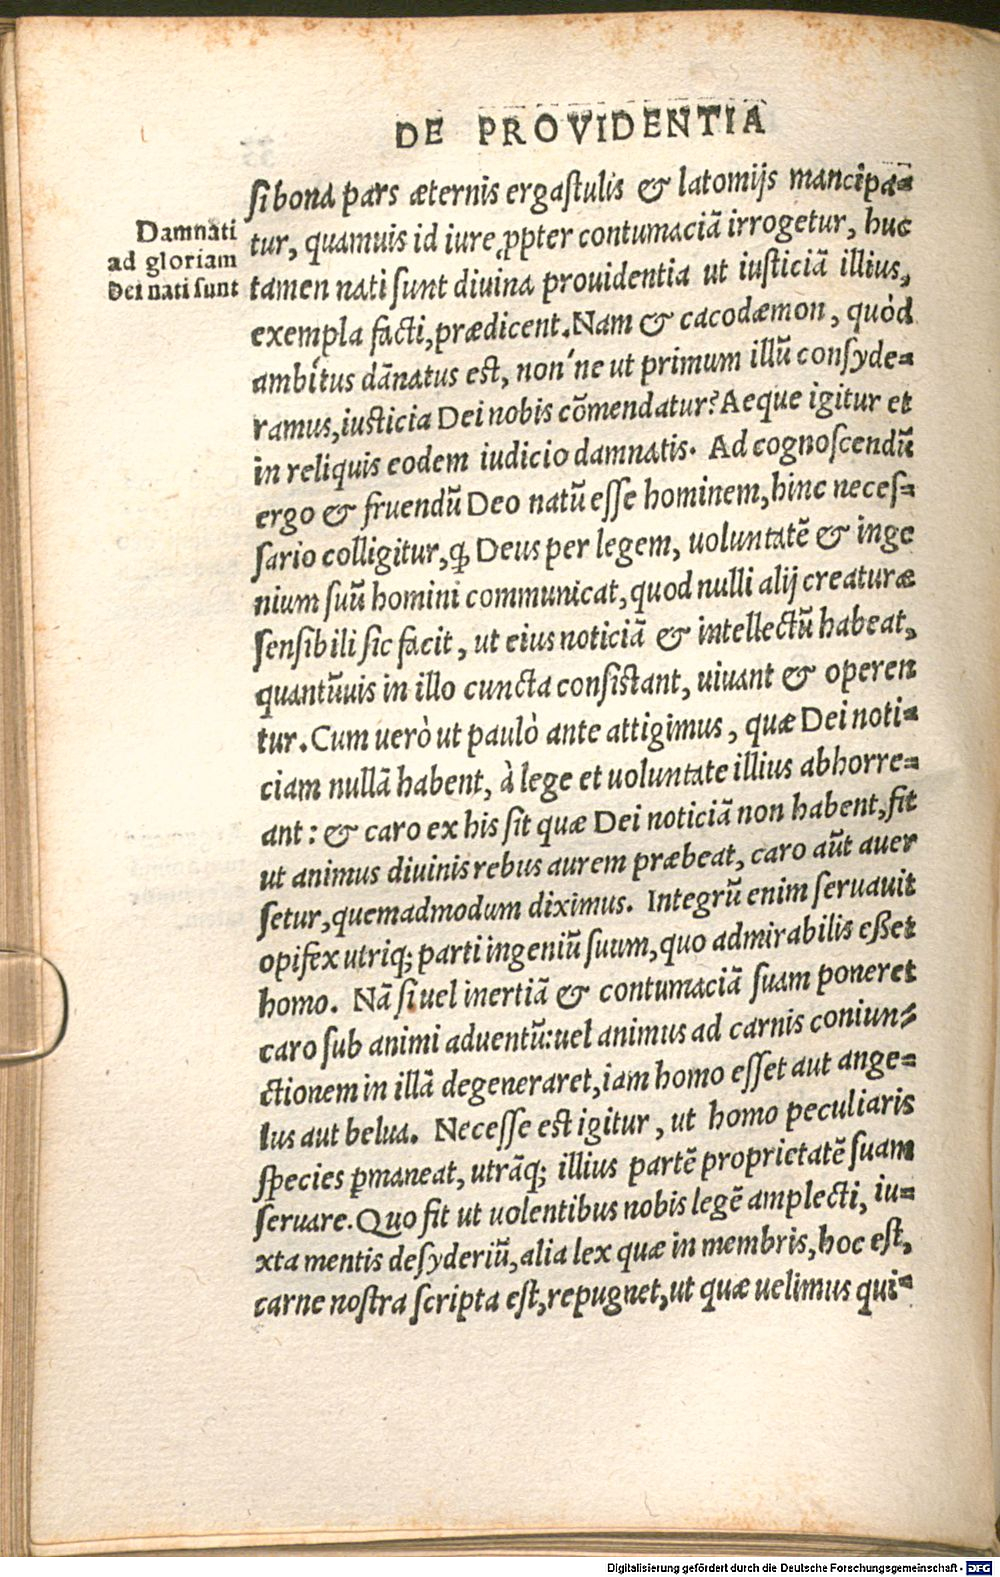 DE PROVIDENTIA
si bona pars æternis ergastulis & latomijs mancipa-
tur, quamuis id iure ꝓpter contumaciā irrogetur, huc
tamen nati sunt diuina prouidentia ut iusticiā illius,
exempla facti, prædicent. Nam & cacodæmon, quòd
ambitus dānatus est, non'ne ut primum illū consyde-
ramus, iusticia Dei nobis cōmendatur? Aeque igitur et
in reliquis eodem iudicio damnatis. Ad cognoscendū
ergo & fruendū Deo natū esse hominem, hinc neces-
sario colligitur, ꝙ Deus per legem, uoluntatē & inge
nium suū homini communicat, quod nulli alij creaturæ
sensibili sic facit, ut eius noticiā & intellectū habeat,
quantūuis in illo cuncta consistant, uiuant & operen
tur. Cum uerò ut paulò ante attigimus, quæ Dei noti-
ciam nullā habent, à lege et uoluntate illius abhorre-
ant: & caro ex his sit quæ Dei noticiā non habent, fit
ut animus diuinis rebus aurem præbeat, caro aūt auer
setur, quemadmodum diximus. Integrū enim seruauit
opifex utriq; parti ingeniū suum, quo admirabilis eßet
homo. Nā si uel inertiā & contumaciā suam poneret
caro sub animi aduentū: uel animus ad carnis coniun-
ctionem in illā degeneraret, iam homo esset aut ange-
lus aut belua. Necesse est igitur, ut homo peculiaris
species ꝑmaneat, utrāq; illius partē proprietatē suam
seruare. Quo fit ut uolentibus nobis legē amplecti, iu-
xta mentis desyderiū, alia lex quæ in membris, hoc est,
carne nostra scripta est, repugnet, ut quæ uelimus qui-
Damnati
ad gloriam
Dei nati sunt
Digitalisierung gefördert durch die Deutsche Forschungsgemeinschaft - DFG